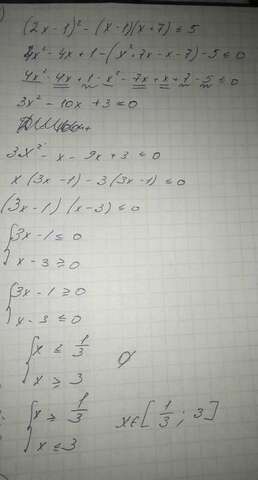 (2x-1)² - (x-1)(x+7) ≤ 5
4x² - 4x + 1 - (x² + 7x - x - 7) - 5 ≤ 0
4x² - 4x + 1 - x² - 7x + x + 7 - 5 ≤ 0
3x² - 10x + 3 ≤ 0
3x² - x - 9x + 3 ≤ 0
x(3x-1) - 3(3x-1) ≤ 0
(3x-1)(x-3) ≤ 0
{ 3x-1 ≤ 0
x-3 ≥ 0
{ 3x-1 ≥ 0
x-3 ≤ 0
{ x ≤ 1/3
x ≥ 3 ∅
{ x ≥ 1/3
x ≤ 3 x∈[1/3; 3]